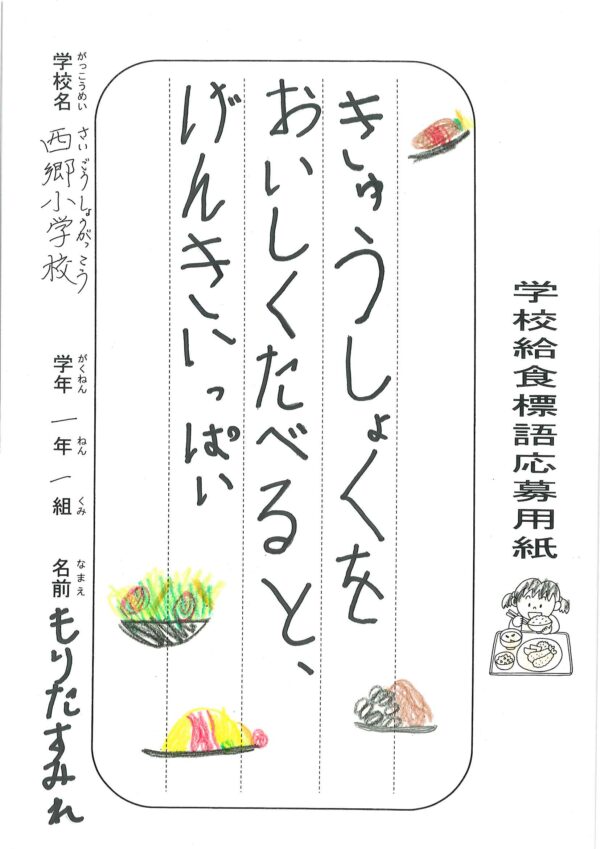 学校給食標語応募用紙
きゅうしょくを
おいしくたべると、
げんきいっぱい
がっこうめい
学校名
さいごうしょうがっこう
西郷小学校
がくねん
学年
一年
ねん
一組
くみ
なまえ
名前
もりたすみれ